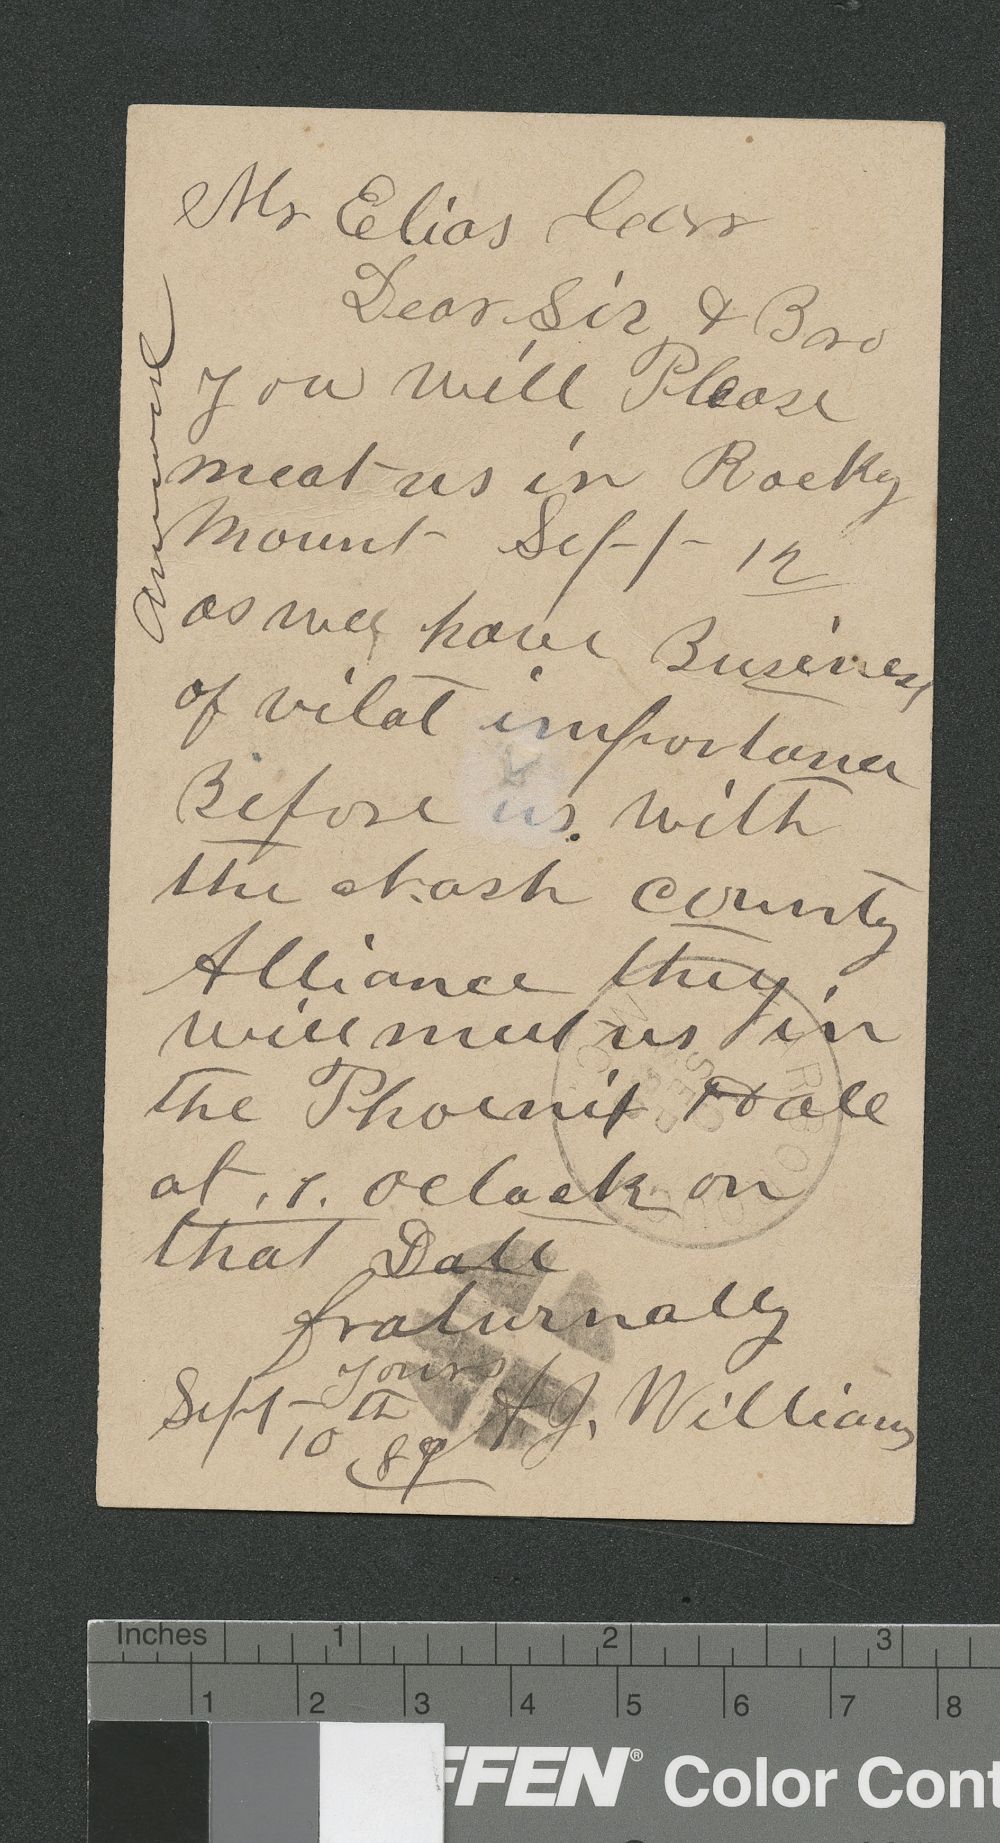 Mr Elias Carr
Dear Sir & Bro
you will Please
meat us in Rocky
Mount Sept 12
as wee have Business
of vital importance
Before us. with
the Nash county
Alliance they
will meet us in
the Phoenix Hall
at .1. oclock on
that Date
fraturnally
yours
Sept 10th 89 A J. Williams
Answered
Inches 1 2 3
1 2 3 4 5 6 7 8
FFEN® Color Cont